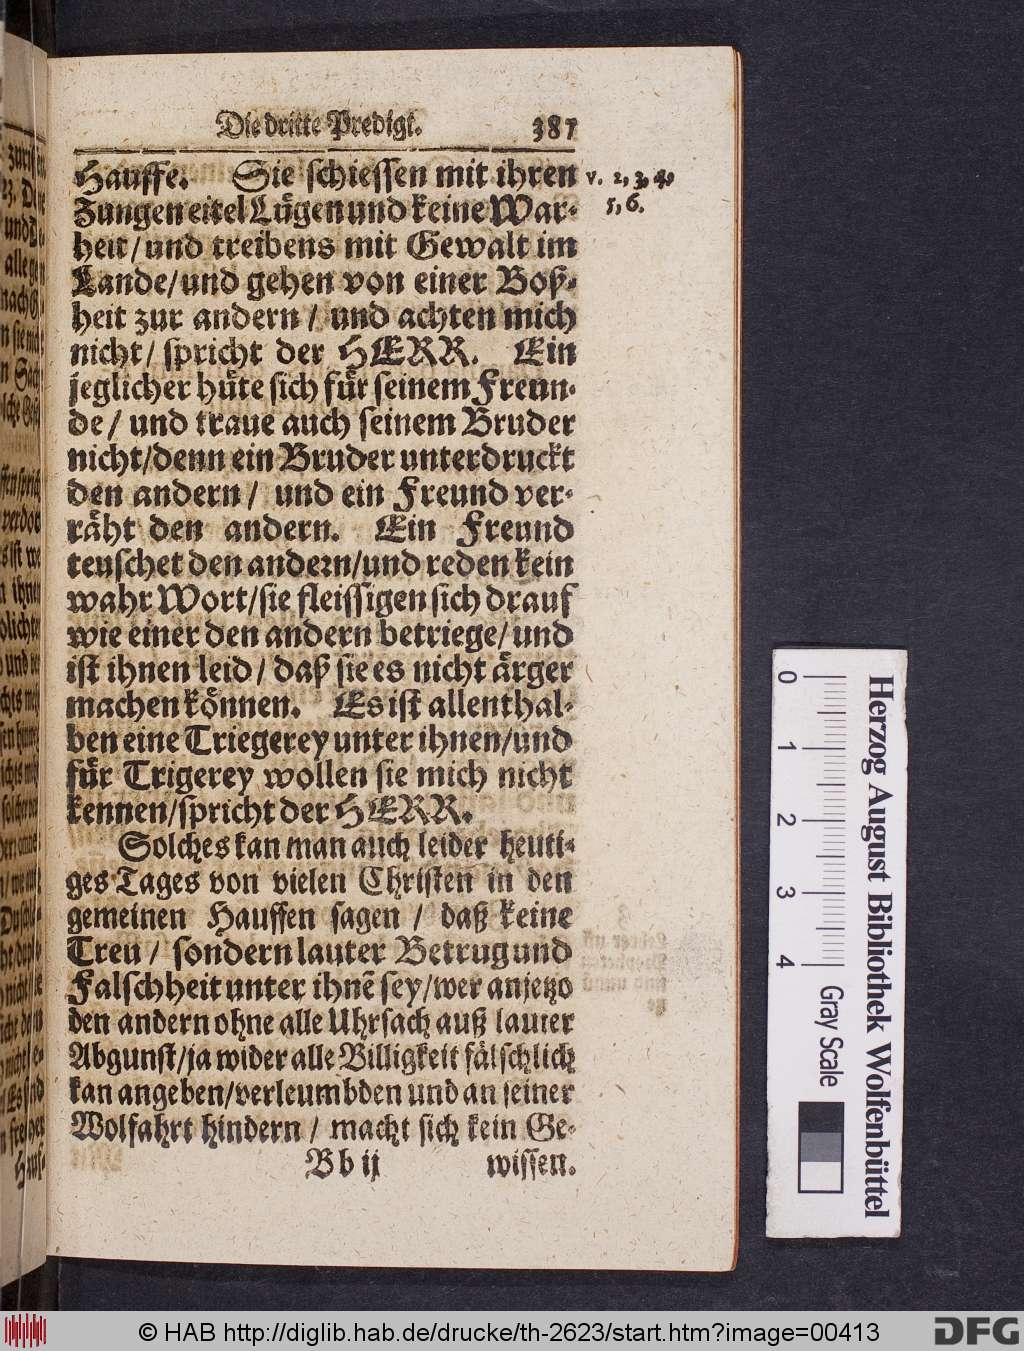 Die dritte Predigt. 387
Hauffe. Sie schiessen mit ihren
Zungen eitel Lügen und keine War-
heit/und treibens mit Gewalt im
Lande/und gehen von einer Boß-
heit zur andern / und achten mich
nicht/ spricht der HERR. Ein
jeglicher hüte sich für seinem Freun-
de/ und traue auch seinem Bruder
nicht/denn ein Bruder unterdruckt
den andern/ und ein Freund ver-
räht den andern. Ein Freund
teuschet den andern/und reden kein
wahr Wort/sie fleissigen sich drauf
wie einer den andern betriege/und
ist ihnen leid/daß sie es nicht ärger
machen können. Es ist allenthal-
ben eine Triegerey unter ihnen/und
für Trigerey wollen sie mich nicht
kennen/spricht der HERR.
Solches kan man auch leider heuti-
ges Tages von vielen Christen in den
gemeinen Hauffen sagen / daß keine
Treu / sondern lauter Betrug und
Falschheit unter ihnẽ sey/wer anjetzo
den andern ohne alle Uhrsach auß lauter
Abgunst/ja wider alle Billigkeit fälschlich
kan angeben/verleumbden und an seiner
Wolfahrt hindern / macht sich kein Ge-
Bb ij wissen.
v. 2, 3, 4,
5, 6.
0 1 2 3 4
Gray Scale
Herzog August Bibliothek Wolfenbüttel
© HAB http://diglib.hab.de/drucke/th-2623/start.htm?image=00413
DFG